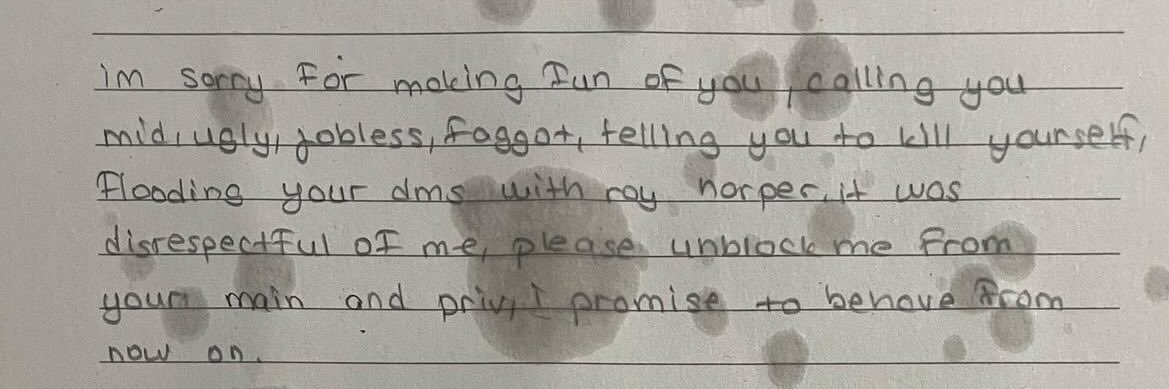 im sorry for making fun of you, calling you
mid, ugly, jobless, faggot, telling you to kill yourself,
flooding your dms with ray harper, it was
disrespectful of me, please unblock me from
your main and priv, I promise to behave from
now on.